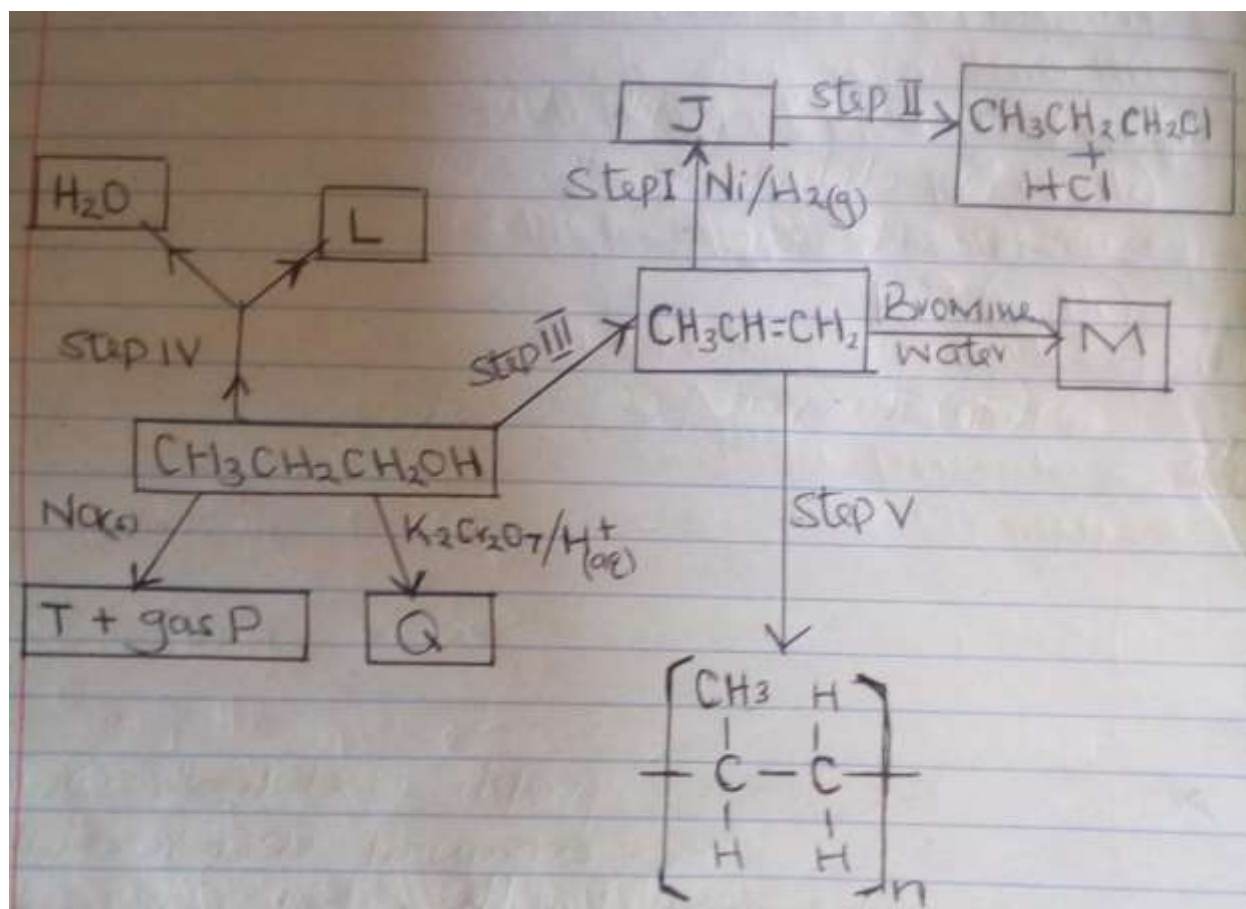 J
Step II
CH₃CH₂CH₂Cl
+
HCl
Step I Ni/H₂(g)
H₂O
L
Step IV
Step III
CH₃CH=CH₂
Bromine
water
M
CH₃CH₂CH₂OH
Na(s)
K₂Cr₂O₇/H⁺(aq)
Step V
T + gas P
Q
CH₃ H
C — C
H H
n